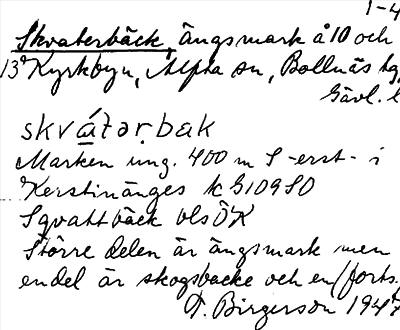 1-4
Skvaterbäck, ängsmark å 10 och
13 Kyrkbyn, Alfta sn, Bollnäs
Gävl. l
skvátər.bak
Marken ung. 400 m S-erst- i
Kerstinänges
Sqvattbäck
Större delen är ängsmark men
en del är skogsbacke och en (forts.
T. Birgerson 1947